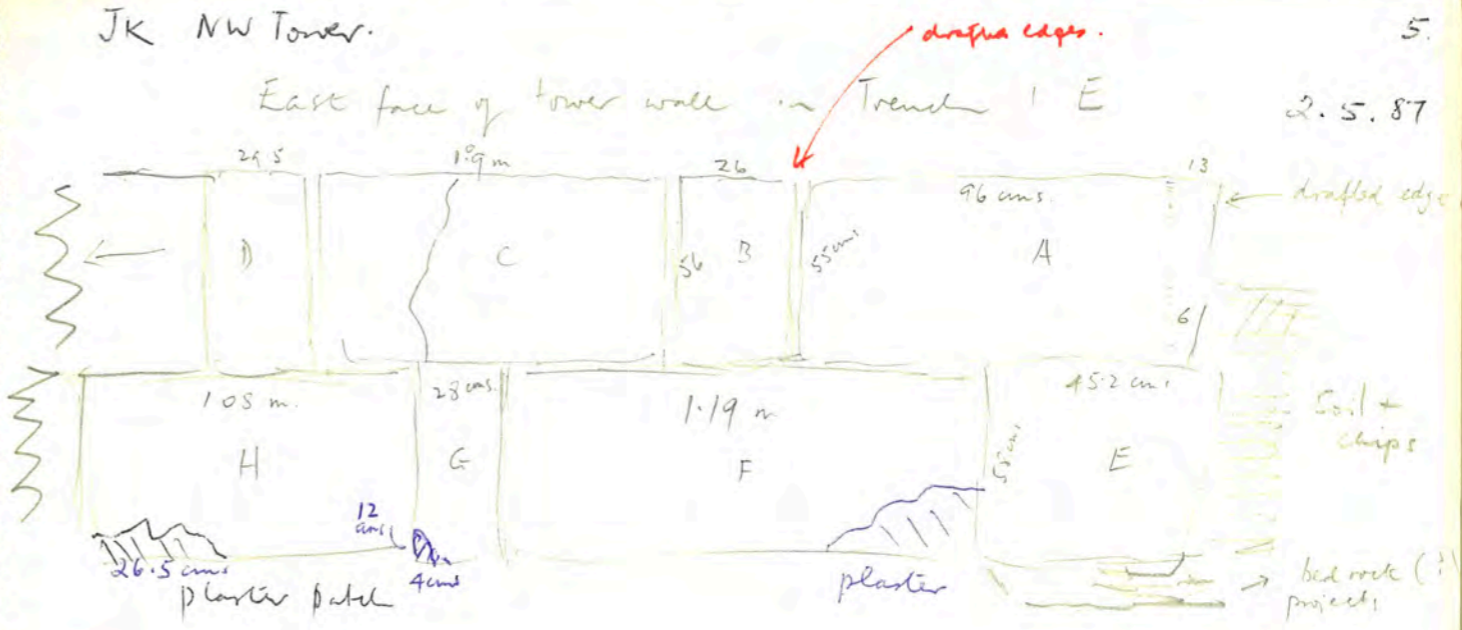 JK NW Tower.
drafted edges.
5.
East face of tower wall in Trench 1 E
2.5.87
29.5
1.9 m
26
13
96 cms.
drafted edge
D
C
56
B
55 cms
A
6
1.05 m.
28 cms.
1.19 m
45.2 cms
Soil +
chips
H
G
F
58 cms
E
12
cms
26.5 cms
4 cms
plaster patch
plaster
bedrock (?)
projects